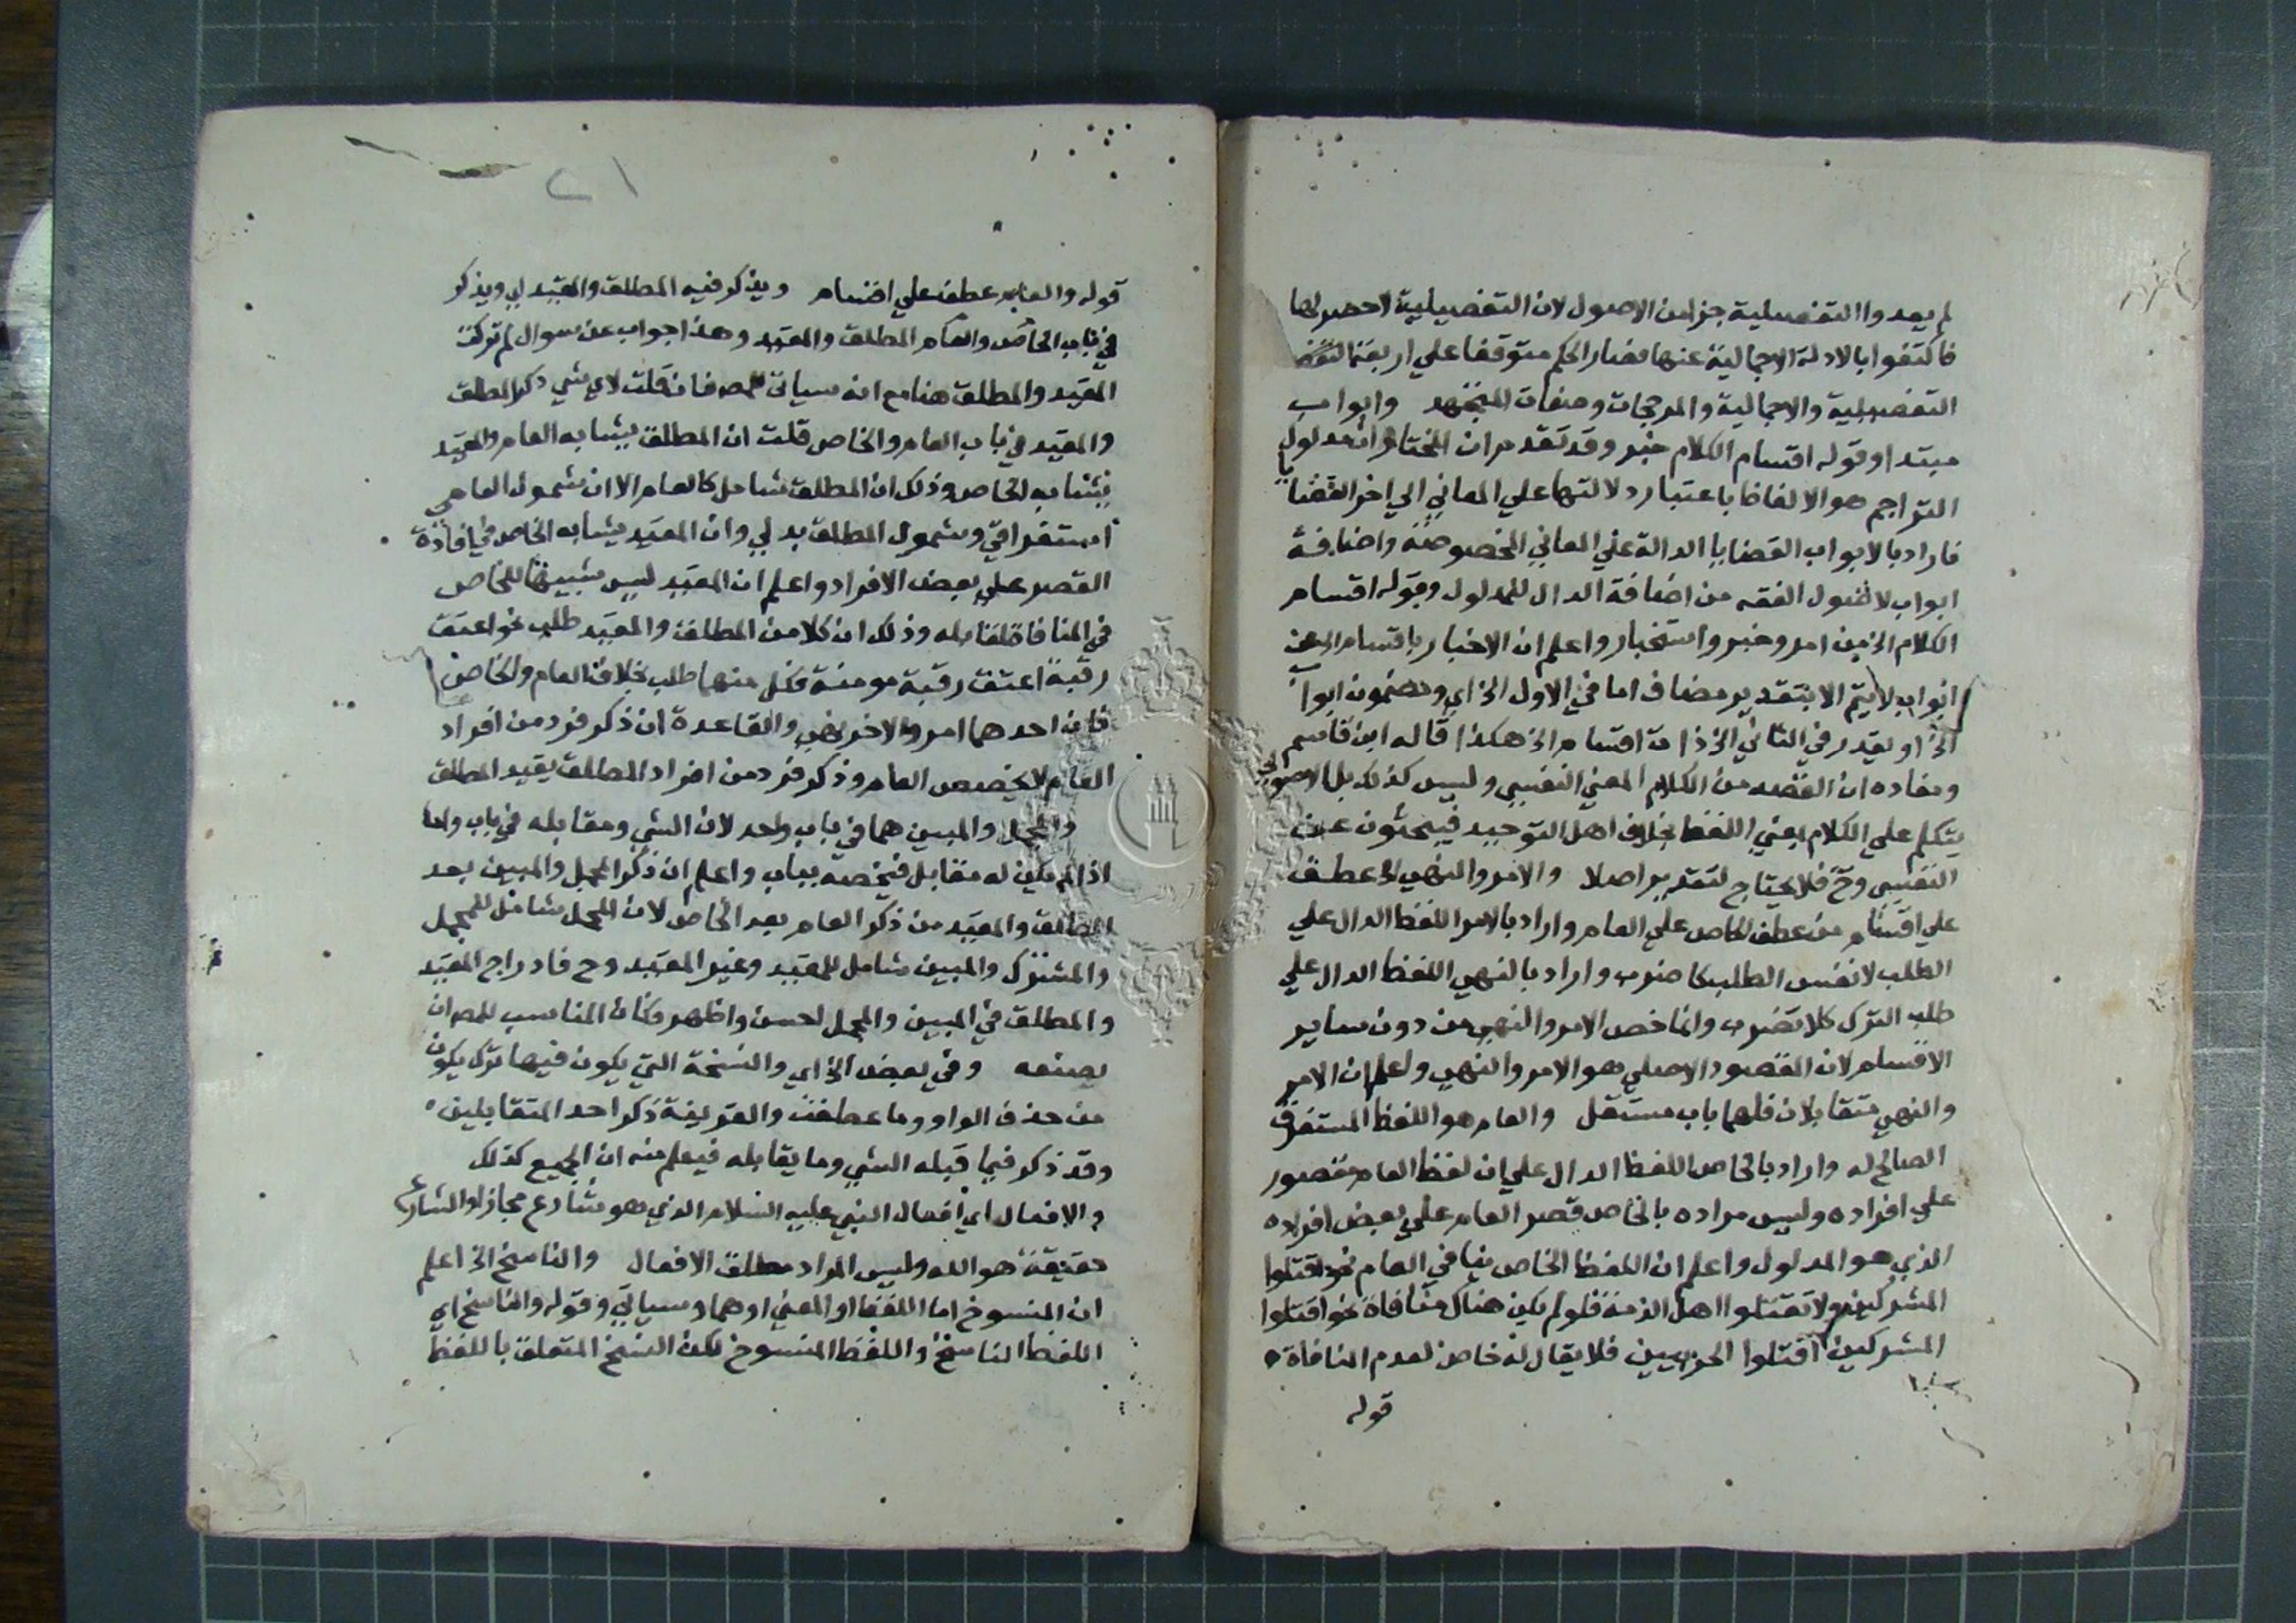 لم يعدوا التفصيلية جزا من الاصول لان التفصيلية لا حصر لها
فاكتفوا بالادلة الاجمالية عنها فصار الحكم متوقفا علي اربعة
التفصيلية والاجمالية والمرجحات وصفات المجتهد وابواب
مبتدا وقوله اقسام الكلام خبر وقد تقدم ان المختار ان مدلول
التراجم هو الالفاظ باعتبار دلالتها علي المعاني الي اخر القضايا
فاراد بالابواب القضايا الدالة علي المعاني المخصوصة واضافة
ابواب لاصول الفقه من اضافة الدال للمدلول وقوله اقسام
الكلام الخ من امر وخبر واستخبار واعلم ان الاخبار باقسام الخ عن
ابواب لا يتم الا بتقدير مضاف اما في الاول الخ اي ومضمون ابواب
الخ او يقدر في الثاني الخ ذات اقسام الخ هكذا قاله ابن قاسم
ومفاده ان القصد من الكلام المعني النفسي وليس كذلك بل الاصولي
يتكلم علي الكلام بمعني اللفظ بخلاف اهل التوحيد فيبحثون عن
النفسي وح فلا يحتاج لتقدير اصلا والامر والنهي الخ عطف
علي اقسام من عطف الخاص علي العام واراد بالامر اللفظ الدال علي
الطلب لا نفس الطلب كاضرب واراد بالنهي اللفظ الدال علي
طلب الترك كلا تضرب وانما خص الامر والنهي من دون ساير
الاقسام لان المقصود الاصلي هو الامر والنهي واعلم ان الامر
والنهي متقابلان فلهما باب مستقل والعام هو اللفظ المستغرق
الصالح له واراد بالخاص اللفظ الدال علي ان لفظ العام مقصور
علي افراده وليس مراده بالخاص قصر العام علي بعض افراده
الذي هو المدلول واعلم ان اللفظ الخاص ينافي العام نحو اقتلوا
المشركين ولا تقتلوا اهل الذمة فلو لم يكن هناك منافاة نحو اقتلوا
المشركين اقتلوا الحربيين فلا يقال له خاص لعدم المنافاة
قوله
٢١
قوله والعام عطف علي اقسام ويذكر فيه المطلق والمقيد اي ويذكر
في باب الخاص والعام المطلق والمقيد وهذا جواب عن سوال لم تركت
المقيد والمطلق هنا مع انه سياتي للمص فان قلت لاي شي ذكر المطلق
والمقيد في باب العام والخاص قلت ان المطلق يشابه العام والمقيد
يشابه الخاص وذلك ان المطلق شامل كالعام الا ان شمول العام
استغراقي وشمول المطلق بدلي وان المقيد يشابه الخاص في افادة
القصر علي بعض الافراد واعلم ان المقيد ليس شبيها للخاص
في المنافاة لمقابله وذلك ان كلا من المطلق والمقيد طلب نحو اعتق
رقبة اعتق رقبة مومنة فكل منهما طلب بخلاف العام والخاص
فان احدهما امر والاخر نهي والقاعدة ان ذكر فرد من افراد
العام لا يخصص العام وذكر فرد من افراد المطلق يقيد المطلق
والمجمل والمبين هما في باب واحد لان الشي ومقابله في باب واما
اذا لم يكن له مقابل فيخصه بباب واعلم ان ذكر المجمل والمبين بعد
المطلق والمقيد من ذكر العام بعد الخاص لان المجمل شامل للمجمل
والمشترك والمبين شامل للمقيد وغير المقيد وح فادراج المقيد
والمطلق في المبين والمجمل احسن واظهر وكان المناسب للمص ان
يصنعه وفي بعض الخ اي والنسخة التي يكون فيها ترك يكون
من حذف الواو وما عطفت والقرينة ذكر احد المتقابلين
وقد ذكر فيما قبله الشي وما يقابله فيعلم منه ان الجميع كذلك
والافعال اي افعال النبي عليه السلام الذي هو شارع مجازا والشارع
حقيقة هو الله وليس المراد مطلق الافعال والناسخ الخ اعلم
ان المنسوخ اما اللفظ او المعني او هما وسياتي وقوله والناسخ اي
اللفظ الناسخ واللفظ المنسوخ لكن النسخ المتعلق باللفظ